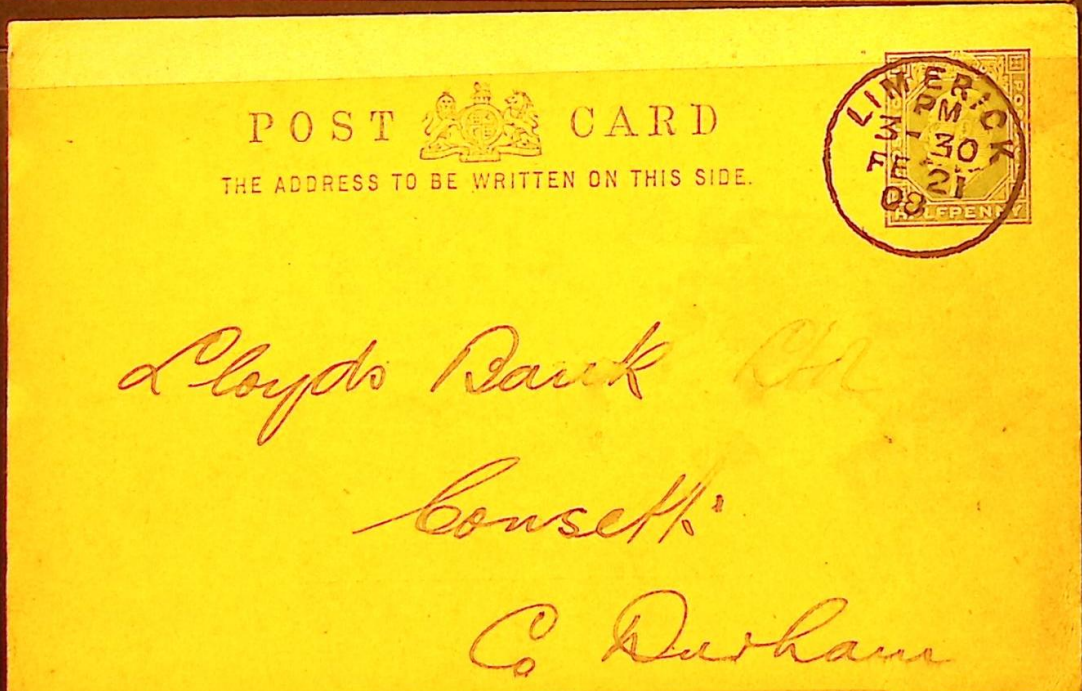 POST CARD
THE ADDRESS TO BE WRITTEN ON THIS SIDE.
LIMERICK
PM
30
FE 21
08
HALFPENNY
Lloyds Bank Ltd
Consett
Co Durham